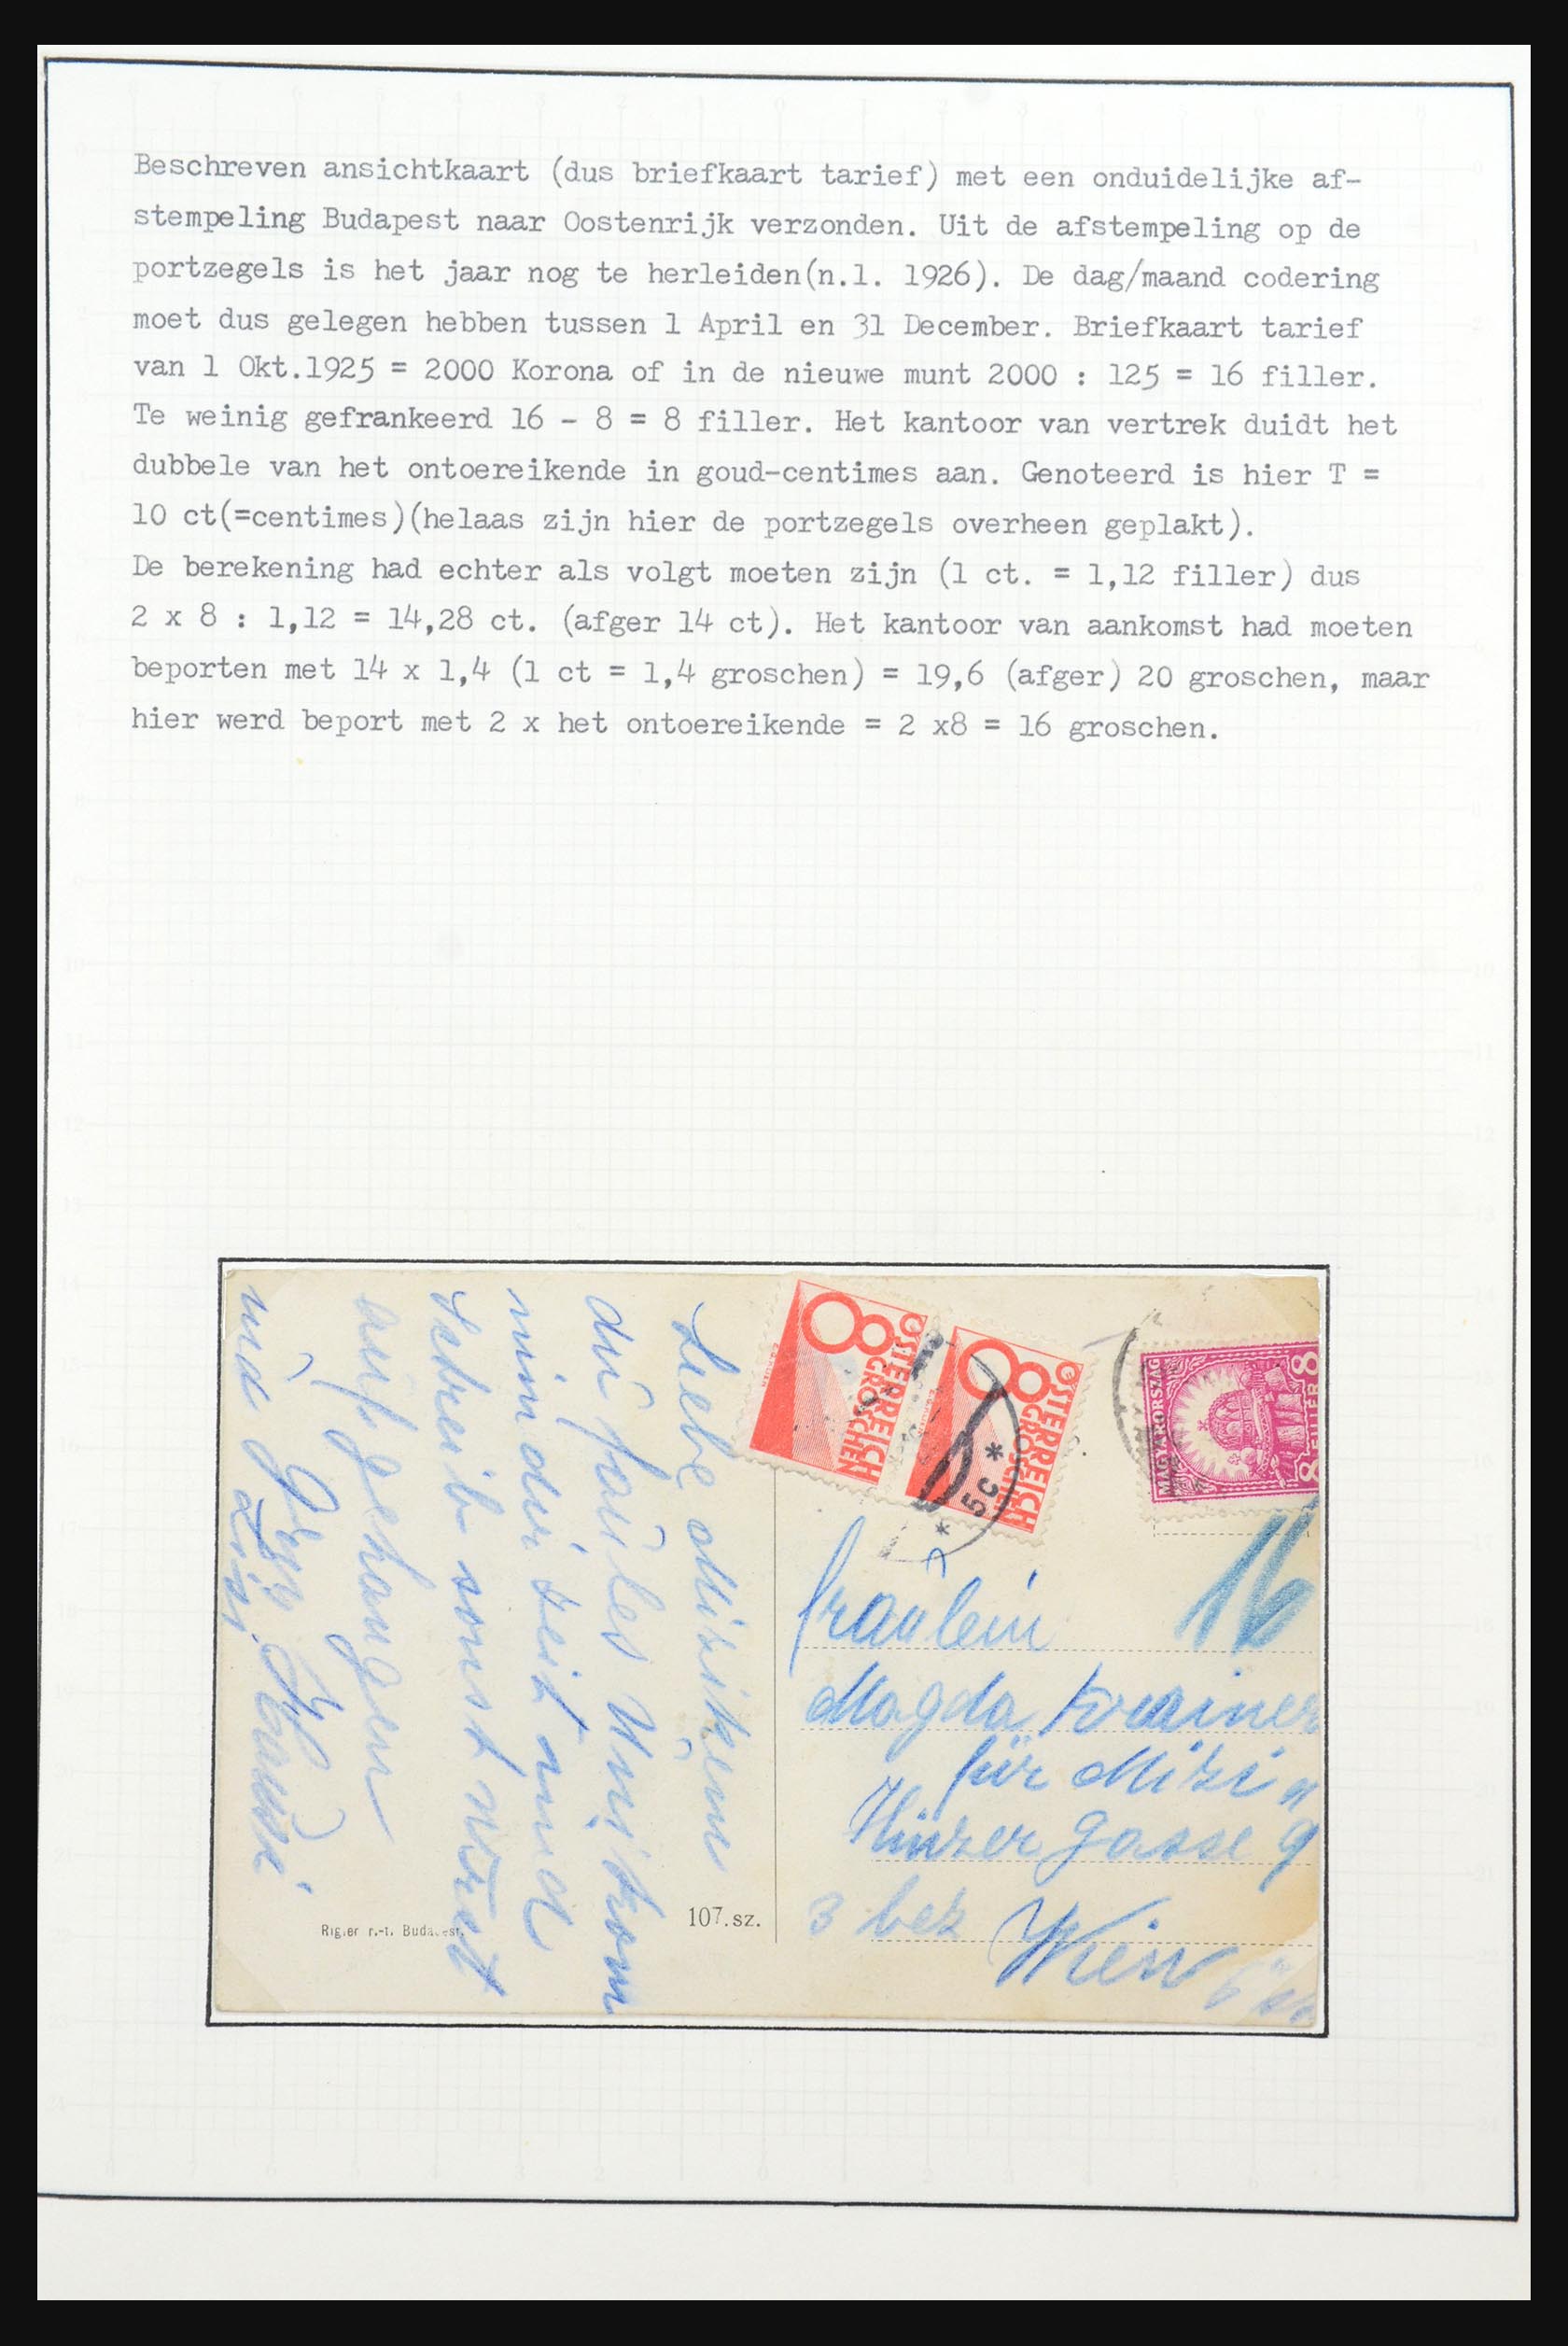 Beschreven ansichtkaart (dus briefkaart tarief) met een onduidelijke af-
stempeling Budapest naar Oostenrijk verzonden. Uit de afstempeling op de
portzegels is het jaar nog te herleiden(n.l. 1926). De dag/maand codering
moet dus gelegen hebben tussen 1 April en 31 December. Briefkaart tarief
van 1 Okt.1925 = 2000 Korona of in de nieuwe munt 2000 : 125 = 16 filler.
Te weinig gefrankeerd 16 - 8 = 8 filler. Het kantoor van vertrek duidt het
dubbele van het ontoereikende in goud-centimes aan. Genoteerd is hier T =
10 ct(=centimes)(helaas zijn hier de portzegels overheen geplakt).
De berekening had echter als volgt moeten zijn (1 ct. = 1,12 filler) dus
2 x 8 : 1,12 = 14,28 ct. (afger 14 ct). Het kantoor van aankomst had moeten
beporten met 14 x 1,4 (1 ct = 1,4 groschen) = 19,6 (afger) 20 groschen, maar
hier werd beport met 2 x het ontoereikende = 2 x8 = 16 groschen.
8 GROSCHEN
ÖSTERREICH
8 GROSCHEN
ÖSTERREICH
* 5c *
MAGYARORSZÁG
8 FILLÉR 8
16
Fräulein
Magda Krainer
für Mizi
gasse 9
3 bez
Wien
Liebe Mizikem
du faules
mir
schreib sonst
und
107.sz.
Rigler r.-t. Budapest.